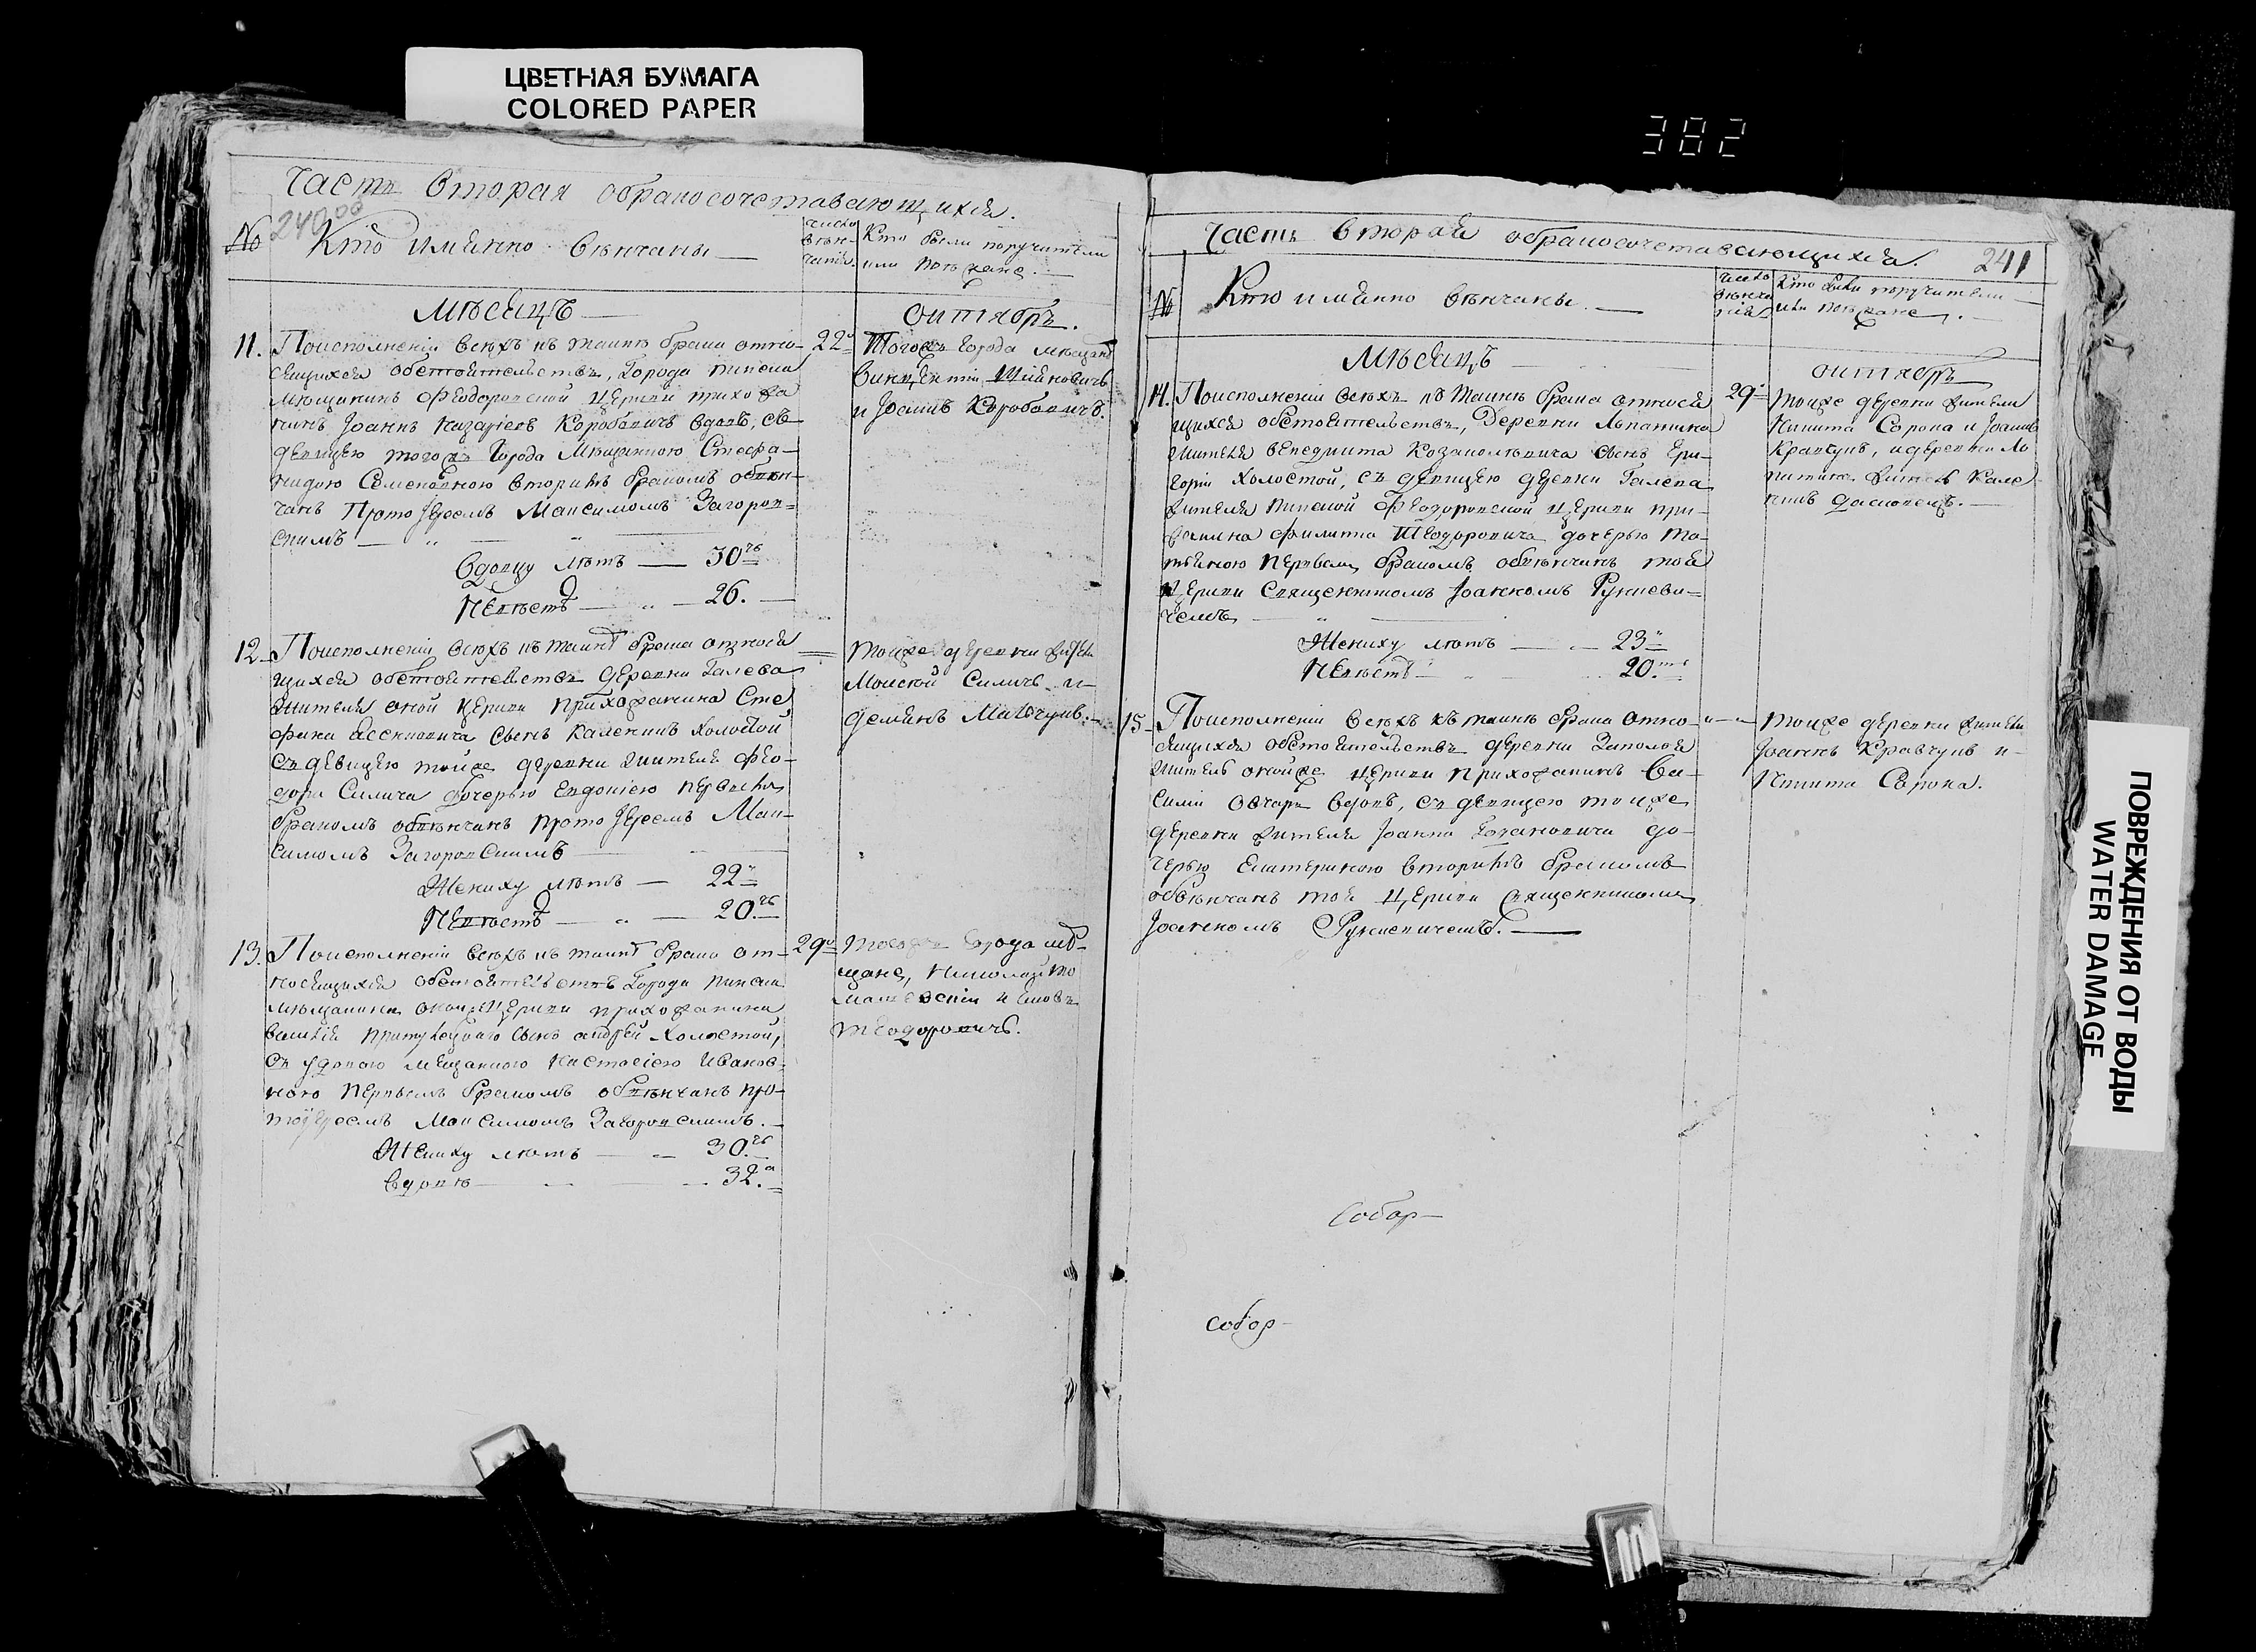 ЦВЕТНАЯ БУМАГА
COLORED PAPER
382
Часть вторая обракосочетавающихся.
240 об
№ Кто имянно вѣнчаны
число вѣнчанія.
Кто были поручители
или поѣзжане.
Мѣсяцъ
октябрь.
11. Поисполненіи всѣхъ къ таинѣ брака отно-
сящихся обстоятельствъ, Города Пинска
мѣщанинъ Феодоровской церкви прихожа
нинъ Іоаннъ Назаріевъ Коробовичъ вдовъ, съ
девицею тогожъ Города Мѣщанкою Стефа-
нидою Семеновною вторымъ бракомъ обвѣн-
чанъ ПротоІереемъ Максимомъ Загоров-
скимъ
Вдовцу лѣтъ — 30
Невѣстѣ — „ — 26.
22
Тогожъ Города мѣщане
Викентій
и Іоаннъ Коробовичъ.
12. Поисполненіи всѣхъ къ таинѣ брака относя
щихся обстоятельствъ деревни Галева
жителя оной церкви прихожанина Сте
фана сынъ Каленикъ холостой
съ девицею тойже деревни жителя Фео-
дора Силича дочерью Евдокіею первымъ
бракомъ обвѣнчанъ протоІереемъ Мак-
симомъ Загоровскимъ
Жениху лѣтъ — 22
Невѣстѣ — „ — 20.
тойже деревни жители
Моисей Силичъ и
Демянъ
13. Поисполненіи всѣхъ къ таинѣ брака от-
носящихся обстоятельствъ Города Пинска
мѣщанина онойже церкви прихожанина
сынъ Андрей холостой,
съ удовою мещанкою Настасіею Иванов-
ною первымъ бракомъ обвѣнчанъ про-
тоіереемъ Максимомъ Загоровскимъ.
Жениху лѣтъ — 30.
Вдовѣ — 32.
29
тогожъ города мѣ-
щане, Николай То
машевскій и
Теодоровичъ.
Часть вторая обракосочетавающихся.
241
№ Кто имянно вѣнчаны.
число вѣнчанія
Кто были поручители
или поѣзжане.
Мѣсяцъ
октябрь
14. Поисполненіи всѣхъ къ таинѣ брака относя
щихся обстоятельствъ, Деревни
жителя Венедикта сынъ Гри-
горій холостой, съ девицею деревни Галева
жителя Пинской Феодоровской церкви при-
жанина Филипа Теодоровича дочерью
первымъ бракомъ обвѣнчанъ тоя
церкви Священникомъ Іоанномъ Рункеви-
чемъ
Жениху лѣтъ — 23
Невѣстѣ — 20.
29
тойже деревни жители
Никита Сорока и Іоаннъ
Кравчукъ, и деревни
житель Кале
никъ
15. Поисполненіи всѣхъ къ таинѣ брака отно-
сящихся обстоятельствъ деревни Заполья
житель онойже церкви прихожанинъ Ва-
силій Овчаръ вдовъ, съ девицею тойже
деревни жителя Іоанна до-
черью Екатериною вторымъ бракомъ
обвѣнчанъ тоя церкви священникомъ
Іоанномъ Рункевичемъ.
тойже деревни жители
Іоаннъ Кравчукъ и
Никита Сорока.
Собор
собор
ПОВРЕЖДЕНИЯ ОТ ВОДЫ
WATER DAMAGE